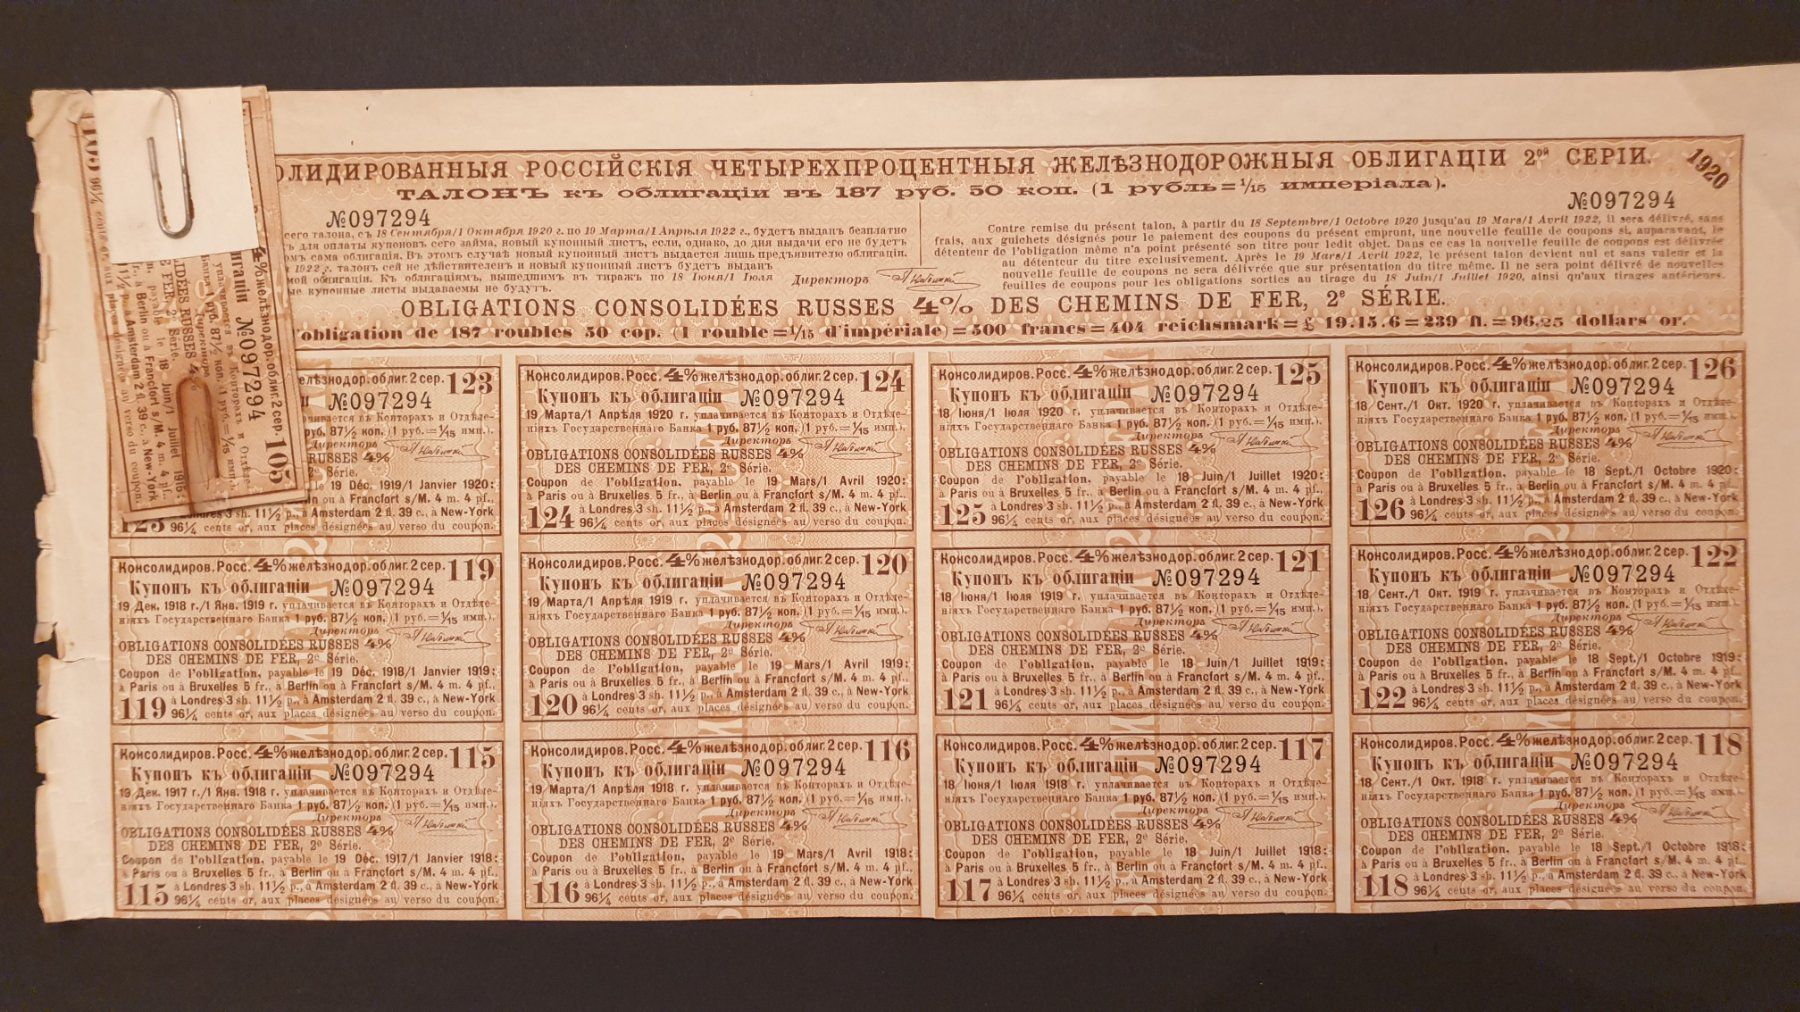 ОЛИДИРОВАННЫЯ РОССІЙСКІЯ ЧЕТЫРЕХПРОЦЕНТНЫЯ ЖЕЛѢЗНОДОРОЖНЫЯ ОБЛИГАЦІИ 2ой СЕРІИ.
1920
ТАЛОНЪ къ облигаціи въ 187 руб. 50 коп. (1 рубль=1/15 имперіала).
№097294
№097294
сего талона, съ 18 Сентября/1 Октября 1920 г. по 19 Марта/1 Апрѣля 1922 г., будетъ выданъ безплатно
для оплаты купоновъ сего займа, новый купонный листъ, если, однако, до дня выдачи его не будетъ
сама облигація. Въ этомъ случаѣ новый купонный листъ выдается лишь предъявителю облигаціи.
1922 г. талонъ сей не дѣйствителенъ и новый купонный листъ будетъ выданъ
облигаціи. Къ облигаціямъ, вышедшимъ въ тиражъ по 18 Іюня/1 Іюля
купонные листы выдаваемы не будутъ.
Директоръ
Contre remise du présent talon, à partir du 18 Septembre/1 Octobre 1920 jusqu'au 19 Mars/1 Avril 1922, il sera délivré, sans
frais, aux guichets désignés pour le paiement des coupons du présent emprunt, une nouvelle feuille de coupons si, auparavant, le
détenteur de l'obligation même n'a point présenté son titre pour ledit objet. Dans ce cas la nouvelle feuille de coupons est délivrée
au détenteur du titre exclusivement. Après le 19 Mars/1 Avril 1922, le présent talon devient nul et sans valeur et la
nouvelle feuille de coupons ne sera délivrée que sur présentation du titre même. Il ne sera point délivré de nouvelles
feuilles de coupons pour les obligations sorties au tirage du 18 Juin/1 Juillet 1920, ainsi qu'aux tirages antérieurs.
OBLIGATIONS CONSOLIDÉES RUSSES 4% DES CHEMINS DE FER, 2e SÉRIE.
l'obligation de 187 roubles 50 cop. (1 rouble=1/15 d'impériale)=500 francs=404 reichsmark=£ 19.15.6=239 fl.=96.25 dollars or.
4% желѣзнодор. облиг. 2 сер. 105
№097294
18 Juin/1 Juillet 1915:
à Berlin ou à Francfort s/M. 4 m. 4 pf.,
à Amsterdam 2 fl. 39 c., à New-York
желѣзнодор. облиг. 2 сер. 123
№097294
уплачивается въ Конторахъ и Отдѣле-
руб. 87½ коп. (1 руб.=1/15 имп.).
Директоръ
RUSSES 4%
Série.
19 Déc. 1919/1 Janvier 1920:
à Berlin ou à Francfort s/M. 4 m. 4 pf.,
à Londres 3 sh. 11½ p., à Amsterdam 2 fl. 39 c., à New-York
123 96¼ cents or, aux places désignées au verso du coupon.
Консолидиров. Росс. 4% желѣзнодор. облиг. 2 сер. 124
Купонъ къ облигаціи №097294
19 Марта/1 Апрѣля 1920 г. уплачивается въ Конторахъ и Отдѣле-
ніяхъ Государственнаго Банка 1 руб. 87½ коп. (1 руб.=1/15 имп.).
Директоръ
OBLIGATIONS CONSOLIDÉES RUSSES 4%
DES CHEMINS DE FER, 2e Série.
Coupon de l'obligation, payable le 19 Mars/1 Avril 1920:
à Paris ou à Bruxelles 5 fr., à Berlin ou à Francfort s/M. 4 m. 4 pf.,
à Londres 3 sh. 11½ p., à Amsterdam 2 fl. 39 c., à New-York
124 96¼ cents or, aux places désignées au verso du coupon.
Консолидиров. Росс. 4% желѣзнодор. облиг. 2 сер. 125
Купонъ къ облигаціи №097294
18 Іюня/1 Іюля 1920 г. уплачивается въ Конторахъ и Отдѣле-
ніяхъ Государственнаго Банка 1 руб. 87½ коп. (1 руб.=1/15 имп.).
Директоръ
OBLIGATIONS CONSOLIDÉES RUSSES 4%
DES CHEMINS DE FER, 2e Série.
Coupon de l'obligation, payable le 18 Juin/1 Juillet 1920:
à Paris ou à Bruxelles 5 fr., à Berlin ou à Francfort s/M. 4 m. 4 pf.,
à Londres 3 sh. 11½ p., à Amsterdam 2 fl. 39 c., à New-York
125 96¼ cents or, aux places désignées au verso du coupon.
Консолидиров. Росс. 4% желѣзнодор. облиг. 2 сер. 126
Купонъ къ облигаціи №097294
18 Сент./1 Окт. 1920 г. уплачивается въ Конторахъ и Отдѣле-
ніяхъ Государственнаго Банка 1 руб. 87½ коп. (1 руб.=1/15 имп.).
Директоръ
OBLIGATIONS CONSOLIDÉES RUSSES 4%
DES CHEMINS DE FER, 2e Série.
Coupon de l'obligation, payable le 18 Sept./1 Octobre 1920:
à Paris ou à Bruxelles 5 fr., à Berlin ou à Francfort s/M. 4 m. 4 pf.,
à Londres 3 sh. 11½ p., à Amsterdam 2 fl. 39 c., à New-York
126 96¼ cents or, aux places désignées au verso du coupon.
Консолидиров. Росс. 4% желѣзнодор. облиг. 2 сер. 119
Купонъ къ облигаціи №097294
19 Дек. 1918 г./1 Янв. 1919 г. уплачивается въ Конторахъ и Отдѣле-
ніяхъ Государственнаго Банка 1 руб. 87½ коп. (1 руб.=1/15 имп.).
Директоръ
OBLIGATIONS CONSOLIDÉES RUSSES 4%
DES CHEMINS DE FER, 2e Série.
Coupon de l'obligation, payable le 19 Déc. 1918/1 Janvier 1919:
à Paris ou à Bruxelles 5 fr., à Berlin ou à Francfort s/M. 4 m. 4 pf.,
à Londres 3 sh. 11½ p., à Amsterdam 2 fl. 39 c., à New-York
119 96¼ cents or, aux places désignées au verso du coupon.
Консолидиров. Росс. 4% желѣзнодор. облиг. 2 сер. 120
Купонъ къ облигаціи №097294
19 Марта/1 Апрѣля 1919 г. уплачивается въ Конторахъ и Отдѣле-
ніяхъ Государственнаго Банка 1 руб. 87½ коп. (1 руб.=1/15 имп.).
Директоръ
OBLIGATIONS CONSOLIDÉES RUSSES 4%
DES CHEMINS DE FER, 2e Série.
Coupon de l'obligation, payable le 19 Mars/1 Avril 1919:
à Paris ou à Bruxelles 5 fr., à Berlin ou à Francfort s/M. 4 m. 4 pf.,
à Londres 3 sh. 11½ p., à Amsterdam 2 fl. 39 c., à New-York
120 96¼ cents or, aux places désignées au verso du coupon.
Консолидиров. Росс. 4% желѣзнодор. облиг. 2 сер. 121
Купонъ къ облигаціи №097294
18 Іюня/1 Іюля 1919 г. уплачивается въ Конторахъ и Отдѣле-
ніяхъ Государственнаго Банка 1 руб. 87½ коп. (1 руб.=1/15 имп.).
Директоръ
OBLIGATIONS CONSOLIDÉES RUSSES 4%
DES CHEMINS DE FER, 2e Série.
Coupon de l'obligation, payable le 18 Juin/1 Juillet 1919:
à Paris ou à Bruxelles 5 fr., à Berlin ou à Francfort s/M. 4 m. 4 pf.,
à Londres 3 sh. 11½ p., à Amsterdam 2 fl. 39 c., à New-York
121 96¼ cents or, aux places désignées au verso du coupon.
Консолидиров. Росс. 4% желѣзнодор. облиг. 2 сер. 122
Купонъ къ облигаціи №097294
18 Сент./1 Окт. 1919 г. уплачивается въ Конторахъ и Отдѣле-
ніяхъ Государственнаго Банка 1 руб. 87½ коп. (1 руб.=1/15 имп.).
Директоръ
OBLIGATIONS CONSOLIDÉES RUSSES 4%
DES CHEMINS DE FER, 2e Série.
Coupon de l'obligation, payable le 18 Sept./1 Octobre 1919:
à Paris ou à Bruxelles 5 fr., à Berlin ou à Francfort s/M. 4 m. 4 pf.,
à Londres 3 sh. 11½ p., à Amsterdam 2 fl. 39 c., à New-York
122 96¼ cents or, aux places désignées au verso du coupon.
Консолидиров. Росс. 4% желѣзнодор. облиг. 2 сер. 115
Купонъ къ облигаціи №097294
19 Дек. 1917 г./1 Янв. 1918 г. уплачивается въ Конторахъ и Отдѣле-
ніяхъ Государственнаго Банка 1 руб. 87½ коп. (1 руб.=1/15 имп.).
Директоръ
OBLIGATIONS CONSOLIDÉES RUSSES 4%
DES CHEMINS DE FER, 2e Série.
Coupon de l'obligation, payable le 19 Déc. 1917/1 Janvier 1918:
à Paris ou à Bruxelles 5 fr., à Berlin ou à Francfort s/M. 4 m. 4 pf.,
à Londres 3 sh. 11½ p., à Amsterdam 2 fl. 39 c., à New-York
115 96¼ cents or, aux places désignées au verso du coupon.
Консолидиров. Росс. 4% желѣзнодор. облиг. 2 сер. 116
Купонъ къ облигаціи №097294
19 Марта/1 Апрѣля 1918 г. уплачивается въ Конторахъ и Отдѣле-
ніяхъ Государственнаго Банка 1 руб. 87½ коп. (1 руб.=1/15 имп.).
Директоръ
OBLIGATIONS CONSOLIDÉES RUSSES 4%
DES CHEMINS DE FER, 2e Série.
Coupon de l'obligation, payable le 19 Mars/1 Avril 1918:
à Paris ou à Bruxelles 5 fr., à Berlin ou à Francfort s/M. 4 m. 4 pf.,
à Londres 3 sh. 11½ p., à Amsterdam 2 fl. 39 c., à New-York
116 96¼ cents or, aux places désignées au verso du coupon.
Консолидиров. Росс. 4% желѣзнодор. облиг. 2 сер. 117
Купонъ къ облигаціи №097294
18 Іюня/1 Іюля 1918 г. уплачивается въ Конторахъ и Отдѣле-
ніяхъ Государственнаго Банка 1 руб. 87½ коп. (1 руб.=1/15 имп.).
Директоръ
OBLIGATIONS CONSOLIDÉES RUSSES 4%
DES CHEMINS DE FER, 2e Série.
Coupon de l'obligation, payable le 18 Juin/1 Juillet 1918:
à Paris ou à Bruxelles 5 fr., à Berlin ou à Francfort s/M. 4 m. 4 pf.,
à Londres 3 sh. 11½ p., à Amsterdam 2 fl. 39 c., à New-York
117 96¼ cents or, aux places désignées au verso du coupon.
Консолидиров. Росс. 4% желѣзнодор. облиг. 2 сер. 118
Купонъ къ облигаціи №097294
18 Сент./1 Окт. 1918 г. уплачивается въ Конторахъ и Отдѣле-
ніяхъ Государственнаго Банка 1 руб. 87½ коп. (1 руб.=1/15 имп.).
Директоръ
OBLIGATIONS CONSOLIDÉES RUSSES 4%
DES CHEMINS DE FER, 2e Série.
Coupon de l'obligation, payable le 18 Sept./1 Octobre 1918:
à Paris ou à Bruxelles 5 fr., à Berlin ou à Francfort s/M. 4 m. 4 pf.,
à Londres 3 sh. 11½ p., à Amsterdam 2 fl. 39 c., à New-York
118 96¼ cents or, aux places désignées au verso du coupon.